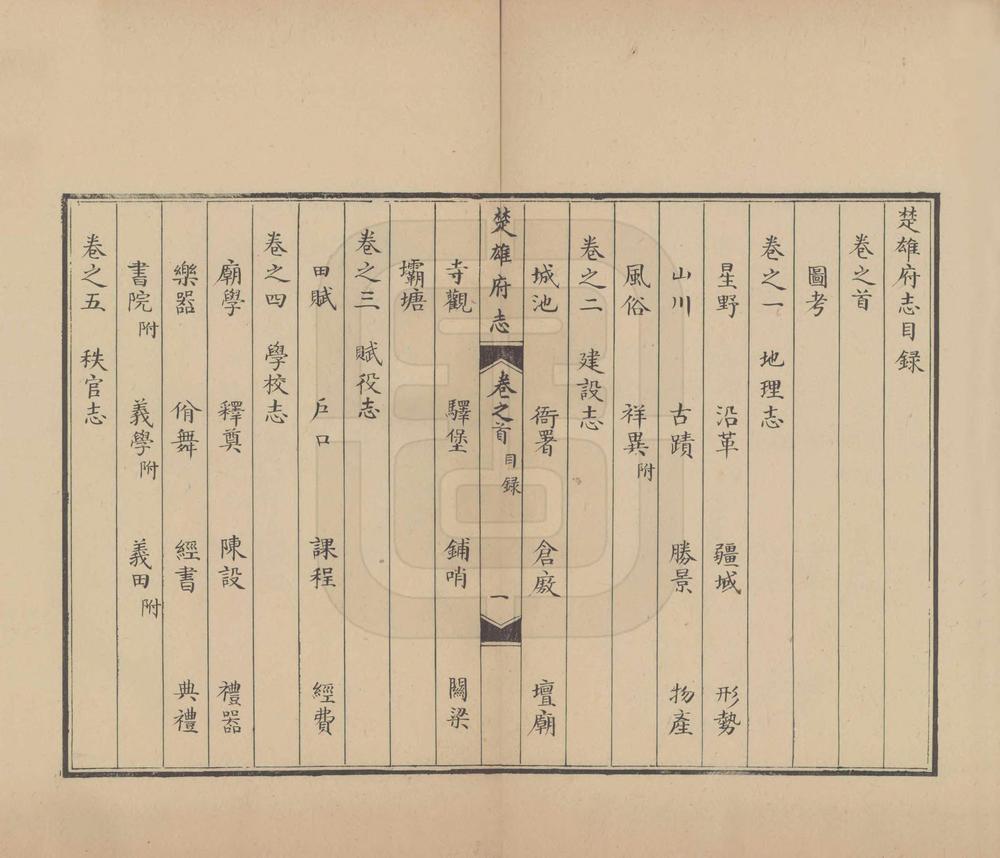 楚雄府志目録
卷之首
圖考
卷之一 地理志
星野 沿革 疆域 形勢
山川 古蹟 勝景 物產
風俗 祥異附
卷之二 建設志
城池 衙署 倉厫 壇廟
楚雄府志 卷之首 目録 一
寺觀 驛堡 鋪哨 關梁
壩塘
卷之三 賦役志
田賦 戶口 課程 經費
卷之四 學校志
廟學 釋奠 陳設 禮器
樂器 佾舞 經書 典禮
書院附 義學附 義田附
卷之五 秩官志